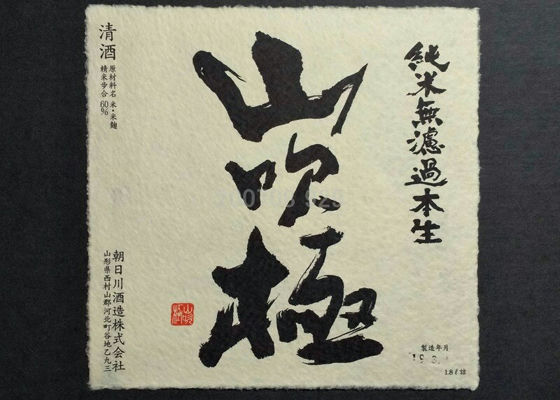 純米無濾過本生
山吹極
清酒
原材料名 米・米麹
精米歩合 60%
朝日川酒造株式会社
山形県西村山郡河北町谷地乙九三
製造年月
1.8ℓ詰